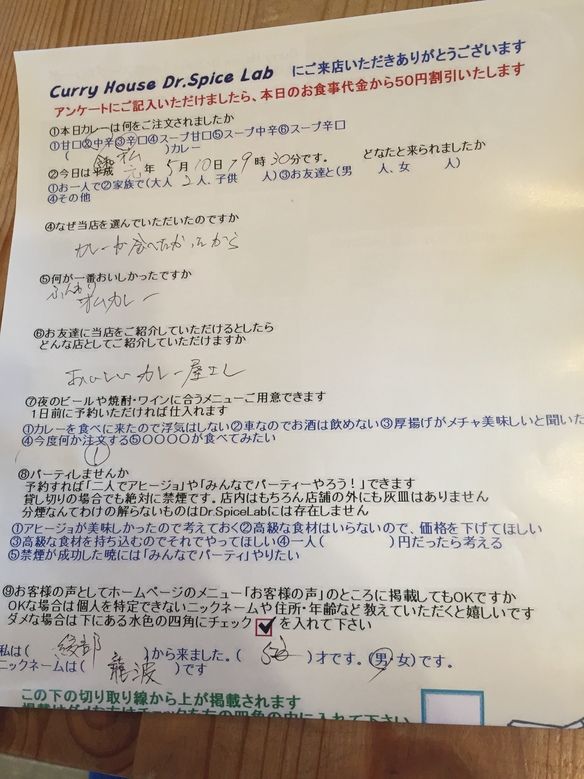 Curry House Dr.Spice Lab にご来店いただきありがとうございます
アンケートにご記入いただけましたら、本日のお食事代金から50円割引いたします
①本日カレーは何をご注文されましたか
①甘口②中辛③辛口④スープ甘口⑤スープ中辛⑥スープ辛口
( )カレー
②今日は平成 令和 元 年 5月10日19時30分です。 どなたと来られましたか
①お一人で②家族で(大人 2人、子供 人)③お友達と(男 人、女 人)
④その他
④なぜ当店を選んでいただいたのですか
カレーが食べたかったから
⑤何が一番おいしかったですか
ふんわり
オムカレー
⑥お友達に当店をご紹介していただけるとしたら
どんな店としてご紹介していただけますか
おいしいカレー屋さん
⑦夜のビールや焼酎・ワインに合うメニューご用意できます
1日前に予約いただければ仕入れます
①カレーを食べに来たので浮気はしない②車なのでお酒は飲めない③厚揚げがメチャ美味しいと聞いた
④今度何か注文する⑤〇〇〇〇が食べてみたい
①
⑧パーティしませんか
予約すれば「二人でアヒージョ」や「みんなでパーティーやろう!」できます
貸し切りの場合でも絶対に禁煙です。店内はもちろん店舗の外にも灰皿はありません
分煙なんてわけの解らないものはDr.SpiceLabには存在しません
①アヒージョが美味しかったので考えておく②高級な食材はいらないので、価格を下げてほしい
③高級な食材を持ち込むのでそれでやってほしい④一人( )円だったら考える
⑤禁煙が成功した暁には「みんなでパーティ」やりたい
⑨お客様の声としてホームページのメニュー「お客様の声」のところに掲載してもOKですか
OKな場合は個人を特定できないニックネームや住所・年齢など教えていただくと嬉しいです
ダメな場合は下にある水色の四角にチェック を入れて下さい
私は( 綾部 )から来ました。( 50 )才です。(男 女)です。
ニックネームは( 龍波 )です
この下の切り取り線から上が掲載されます
掲載はダメな方はチェックを右の四角の中に入れて下さい